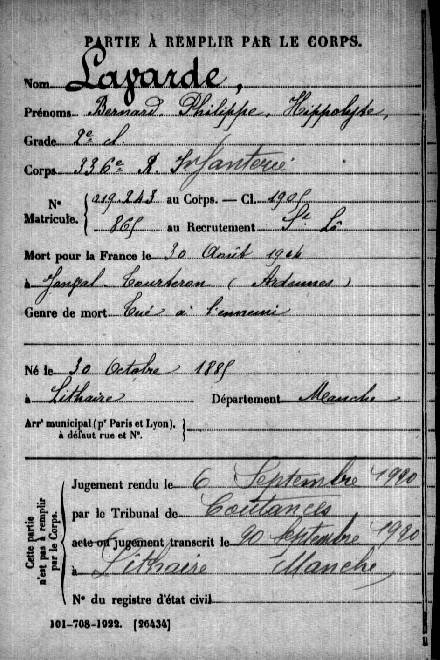 PARTIE À REMPLIR PAR LE CORPS.
Nom Lavarde,
Prénoms Bernard Philippe, Hippolyte,
Grade 2e cl
Corps 336e R. Infanterie
N° Matricule. { 019.243 au Corps. — Cl. 1905
865 au Recrutement St Lô
Mort pour la France le 30 Août 1914
à (Ardennes)
Genre de mort Tué à l'ennemi
Né le 30 Octobre 1885
à Lithaire Département Manche
Arrt municipal (pr Paris et Lyon), à défaut rue et N°. }
Cette partie n'est pas à remplir par le Corps.
Jugement rendu le 6 Septembre 1920
par le Tribunal de Coutances
acte ou jugement transcrit le 20 Septembre 1920
à Lithaire Manche
N° du registre d'état civil
101-708-1922. [26434]